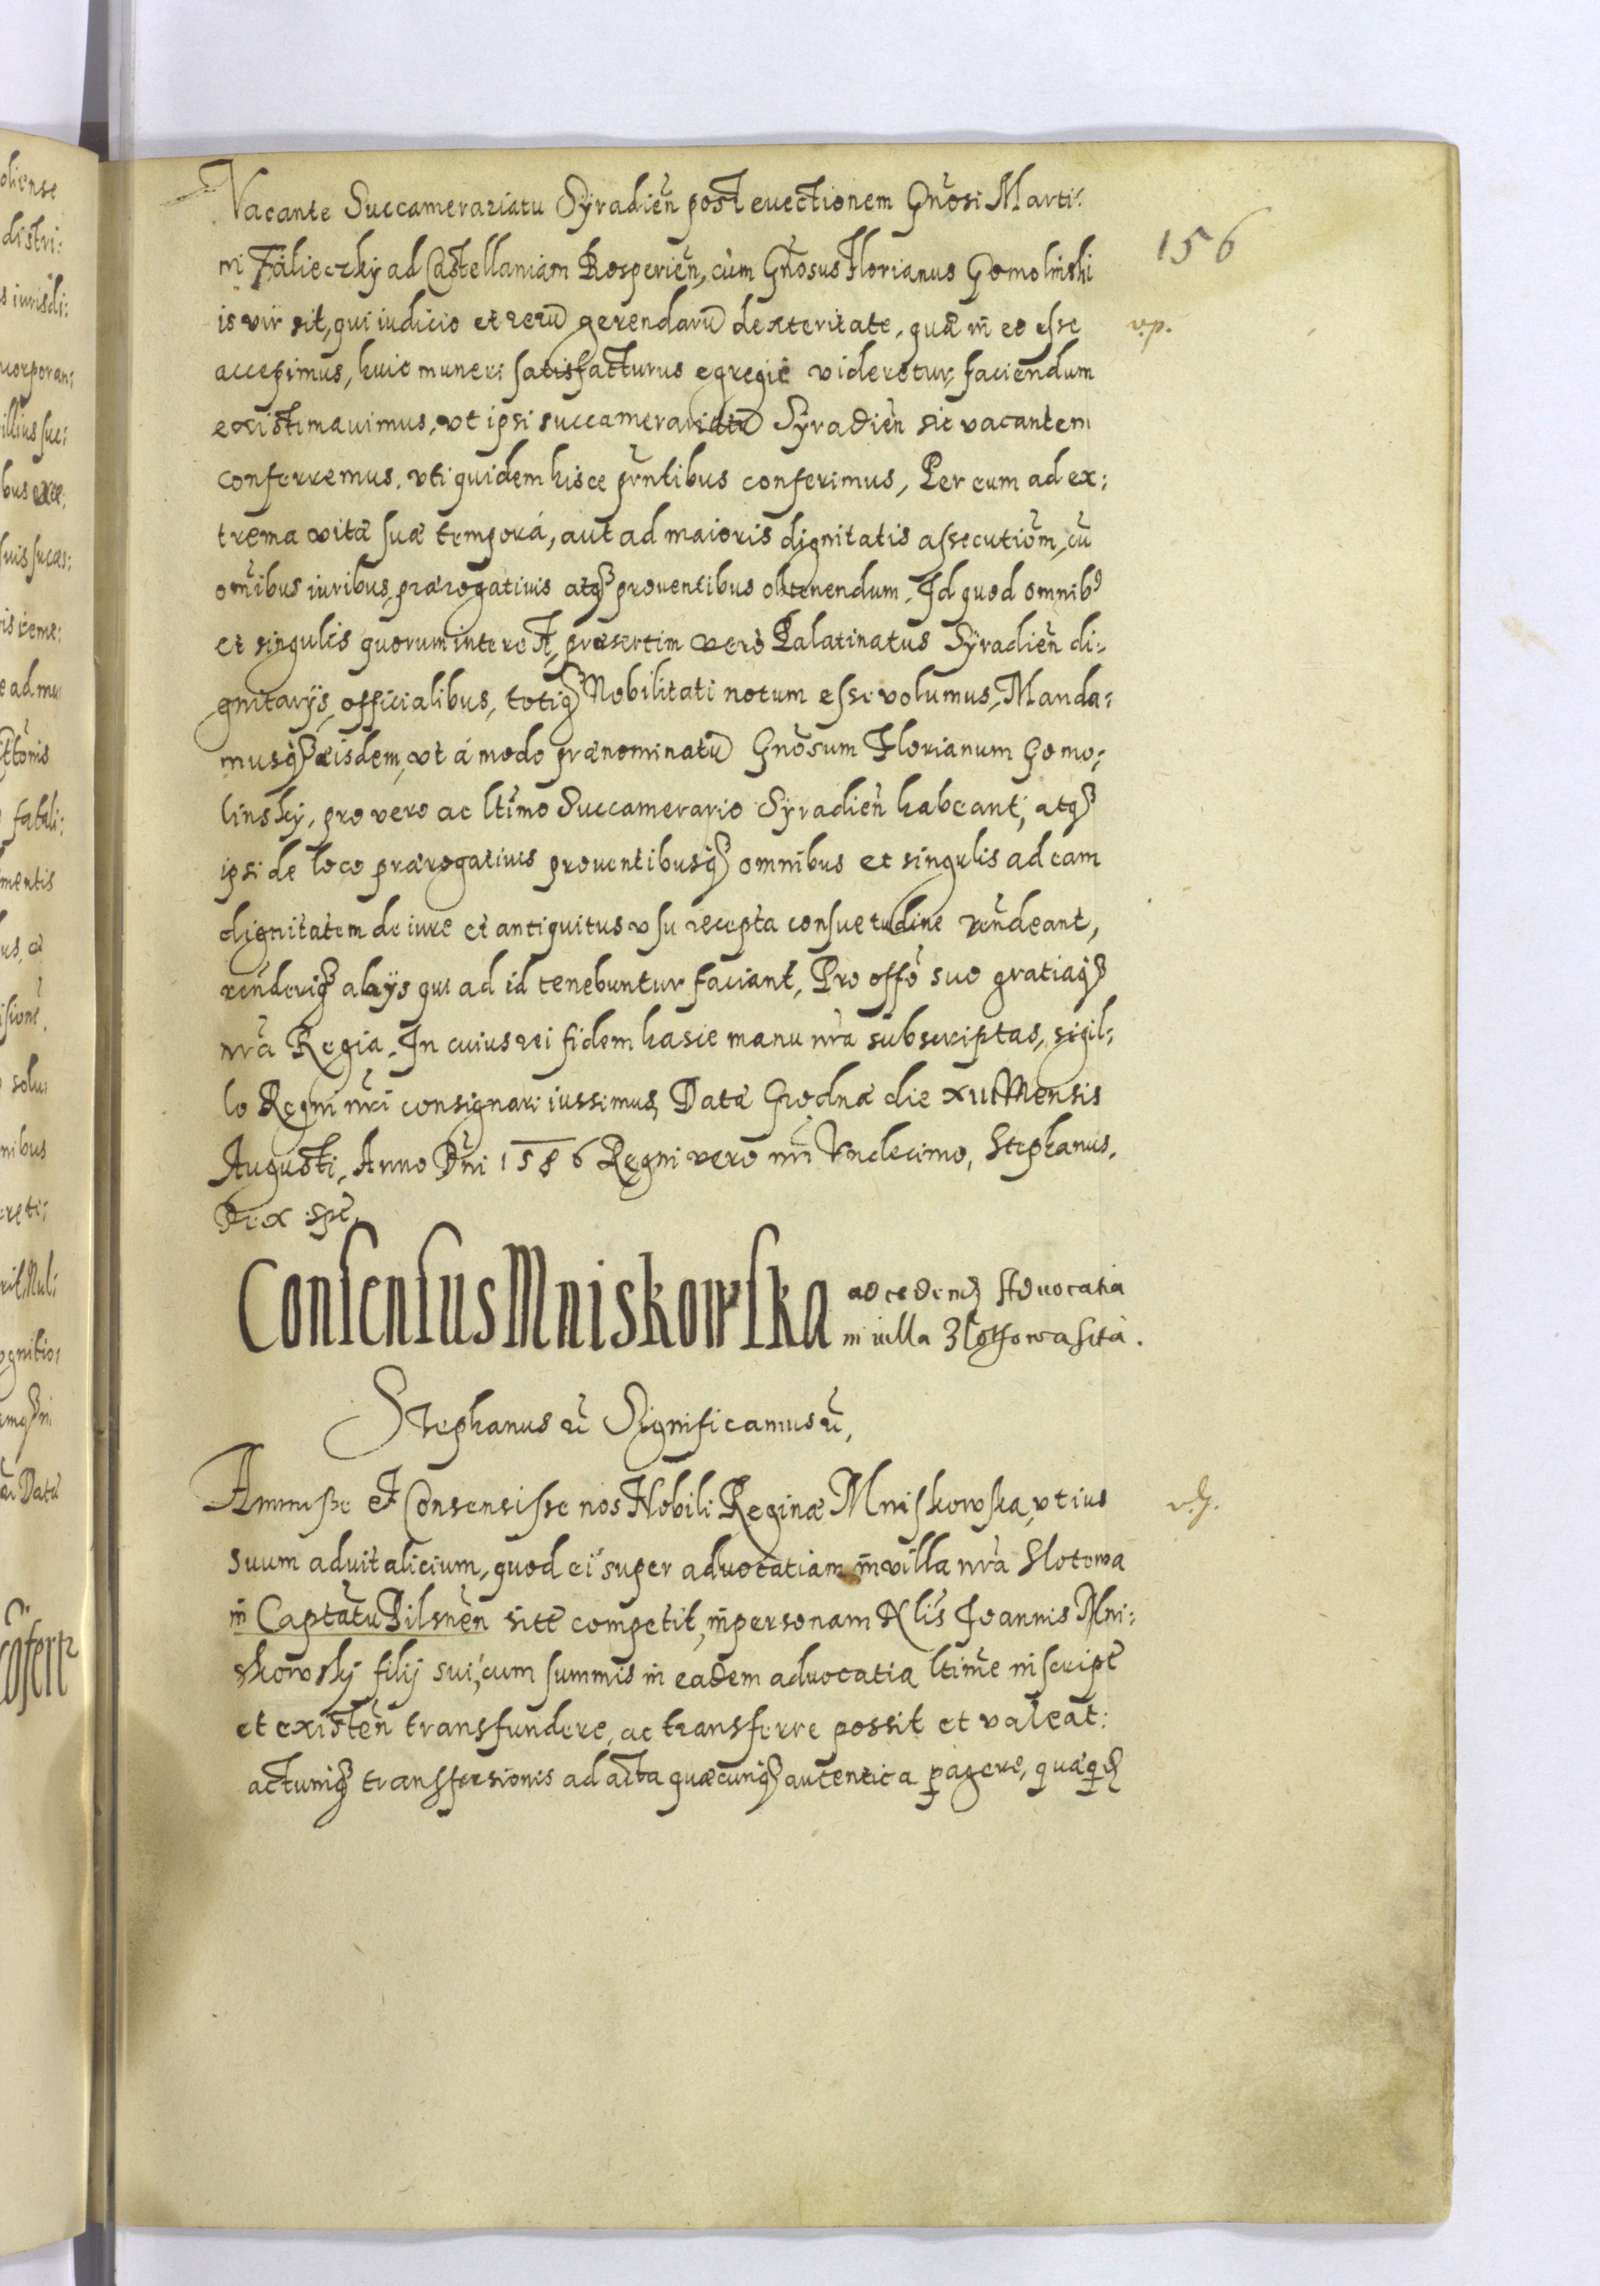 156
Vacante Succamerariatu Syradien̄ post euectionem Gn̄osi Marti:
ni Falieczky ad Castellaniam Rosperien̄, cùm Gn̄osus Florianus Gomolinski
is vir sit, qui iudicio et rerū gerendarū dexteritate, quā in eo esse
v.p.
accepimus, huic muneri satisfacturus egregiè videretur, faciendum
existimauimus, vt ipsi succamerariatū Syradien̄ sic vacantem
conferremus, vti quidem hisce pn̄tibus conferimus, Per eum ad ex:
trema vitæ suæ tempora, aut ad maioris dignitatis assecutiōm, cū
om̄ibus iuribus, prærogatiuis atq₃ prouentibus obtenendum. Id quod omnib9
et singulis quorum interest, præsertim verò Palatinatus Syradien̄ di:
gnitarijs, officialibus, totiq₃ Nobilitati notum esse volumus, Manda:
musq₃ eisdem, vt á modo prænominatū Gn̄osum Florianum Gomo:
linsky, pro vero ac ltīmo Succamerario Syradien̄ habeant, atq₃
ipsi de loco prærogatiuis prouentibusq₃ omnibus et singulis ad eam
dignitatem de iure et antiquitus vsu recepta consuetudine rn̄deant,
rn̄deriq₃ ab alijs qui ad id tenebuntur faciant, Pro offō suo gratiaq₃
nr̄a Regia. In cuius rei fidem hasce manu nr̄a subscriptas, sigil:
lo Regni nr̄i consignari iussimus, Datæ Grodnæ die XII Mensis
Augusti, Anno Dn̄i 1586 Regni vero nr̄i Vndecimo, Stephanus
Rex spt̄.
Consensus Mniskowska ad cedend₃ Aduocatia
in villa Zlottowa sita.
Stephanus etc̄ Significamus etc̄,
Ammisse et Consensisse nos Nobili Reginæ Mniskowska, vt ius
v.p.
suum aduitalicium, quod ei super aduocatiam in villa nr̄a Slotowa
in Captātu Pilsnēn sitt̄ competit, in personam Nlis Joannis Mni:
skowsky filij sui, cum summis in eadem aduocatia ltīme inscript̄
et existen̄ transfundere, ac transferre possit et valeat:
actumq₃ transfusionis ad acta quæcunq₃ autentica pagere, quaq₃